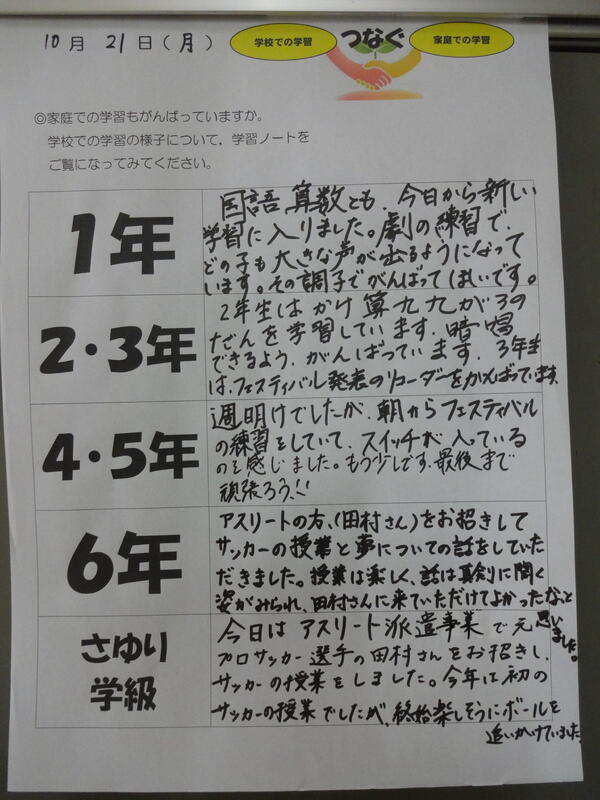 10月 21日(月)
学校での学習 つなぐ 家庭での学習
◎家庭での学習もがんばっていますか。
学校での学習の様子について，学習ノートを
ご覧になってみてください。
1年
国語 算数とも、今日から新しい
学習に入りました。劇の練習で、
どの子も大きな声が出るようになって
います。その調子でがんばってほしいです。
2・3年
2年生はかけ算九九が3の
だんを学習しています。暗唱
できるよう、がんばっています。3年生
は、フェスティバル発表のリコーダーをがんばっています。
4・5年
週明けでしたが、朝からフェスティバル
の練習をしていて、スイッチが入っている
のを感じました。もう少しです、最後まで
頑張ろう!!
6年
アスリートの方、(田村さん)をお招きして
サッカーの授業と夢についての話をしていた
だきました。授業は楽しく、話は真剣に聞く
姿がみられ、田村さんに来ていただけてよかったなと
思いました。
さゆり
学級
今日はアスリート派遣事業で元
プロサッカー選手の田村さんをお招きし、
サッカーの授業をしました。今年は初の
サッカーの授業でしたが、終始楽しそうにボールを
追いかけていました。